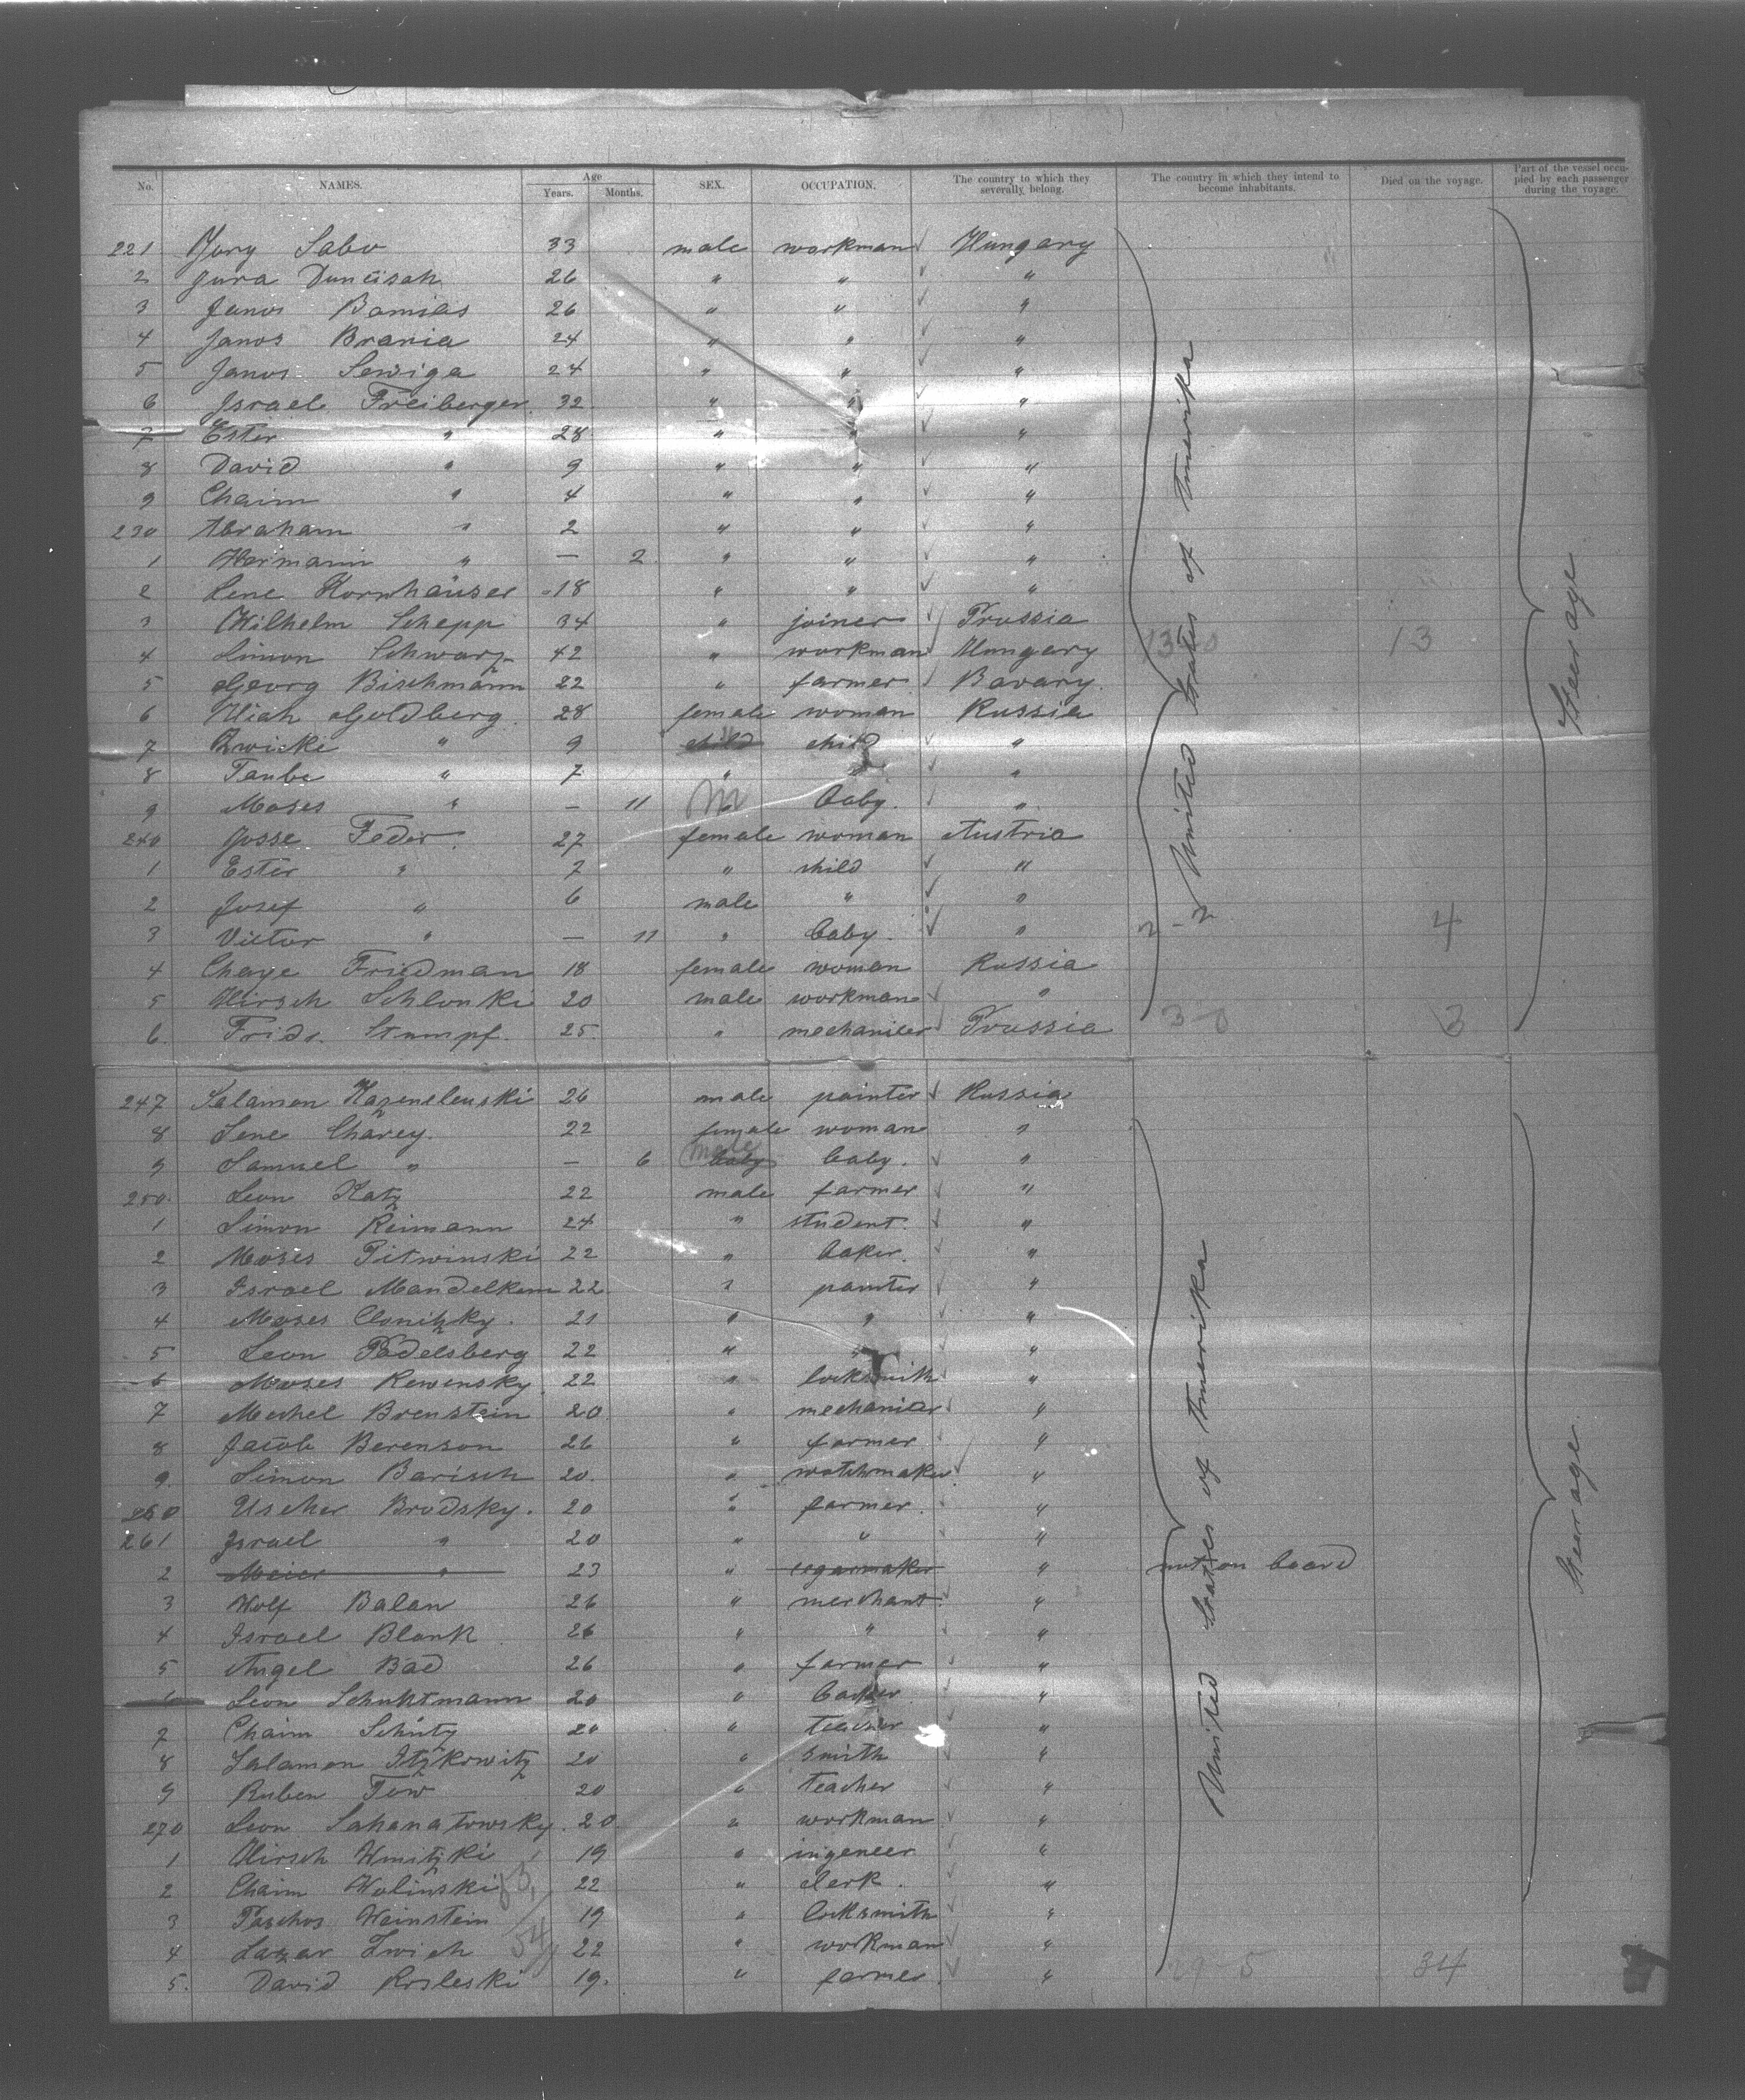 No. NAMES. Age Years. Months. SEX. OCCUPATION. The country to which they severally belong. The country in which they intend to become inhabitants. Died on the voyage. Part of the vessel occupied by each passenger during the voyage.
221 Jury Sabo 33 male workman Hungary
2 Jura 26 " " "
3 Janos 26 " " "
4 Janos Brania 24 " " "
5 Janos Sewiga 24 " " "
6 Israel Freiberger 32 " " "
7 Ester " 28 " " "
8 David " 9 " " "
9 Chaim " 4 " " "
230 Abraham " 2 " " "
1 Hermann " — 2 " " "
2 Lene Kornhäuser 18 " " "
3 Wilhelm Schepp 34 " joiner Prussia
4 Simon Schwarz 42 " workman Hungary 13
5 Georg Bischmann 22 " farmer Bavary.
6 Goldberg. 28 female woman Russia
7 Zwicki " 9 child child "
8 Taube " 7 " " "
9 Moses " — 11 m baby. "
240 Josse Feder. 27 female woman Austria
1 Ester " 7 " child "
2 Josef " 6 male " "
3 Victor " — 11 " baby. " 4
4 Chaye Friedman 18 female woman Russia
5 Hirsch Schlonki 20 male workman "
6. Fridr. Stumpf. 25. " mechaniker Prussia 3-0 3
United States of Amerika
Steerage
247 Salamon Kazenelenski 26 male painter Russia
8 Lene Charey. 22 female woman "
9 Samuel " — 6 baby male baby. "
250. Leon Katz 22 male farmer "
1 Simon Reimann 24 " student. "
2 Moses Pitwinski 22 " baker. "
3 Israel Mandelkern 22 " painter "
4 Moses Clonitzky. 21 " " "
5 Leon Padelsberg 22 " " "
6 Moses Rewensky 22 " locksmith "
7 Mechel Brenstein 20. " mechaniker "
8 Jacob Berenson 26 " farmer "
9. Simon Barisch 20. " watchmaker "
260 Uscher Brodsky. 20 " farmer. "
261 Israel " 20 " " "
2 Meier " 23 " cigarmaker " not on board
3 Wolf Balan 26 " merchant. "
4 Israel Blank 26 " " "
5 Angel Bad 26 " farmer "
6 Leon Schuktmann 20 " "
7 Chaim Schütz 20 " teacher "
8 Salamon Itzkowitz 20 " smith "
9 Ruben Tow 20 " teacher "
270 Leon Sahanatowsky. 20 " workman "
1 Hirsch Wmitzki 19 " ingeneer "
2 Chaim Wolinski 22 " clerk. "
3 Paschos Weinstein 19 " locksmith "
4 Lazar Zwich 22 " workman "
5. David Rosleski 19. " farmer. " 29 5 34
United States of Amerika
Steerage.